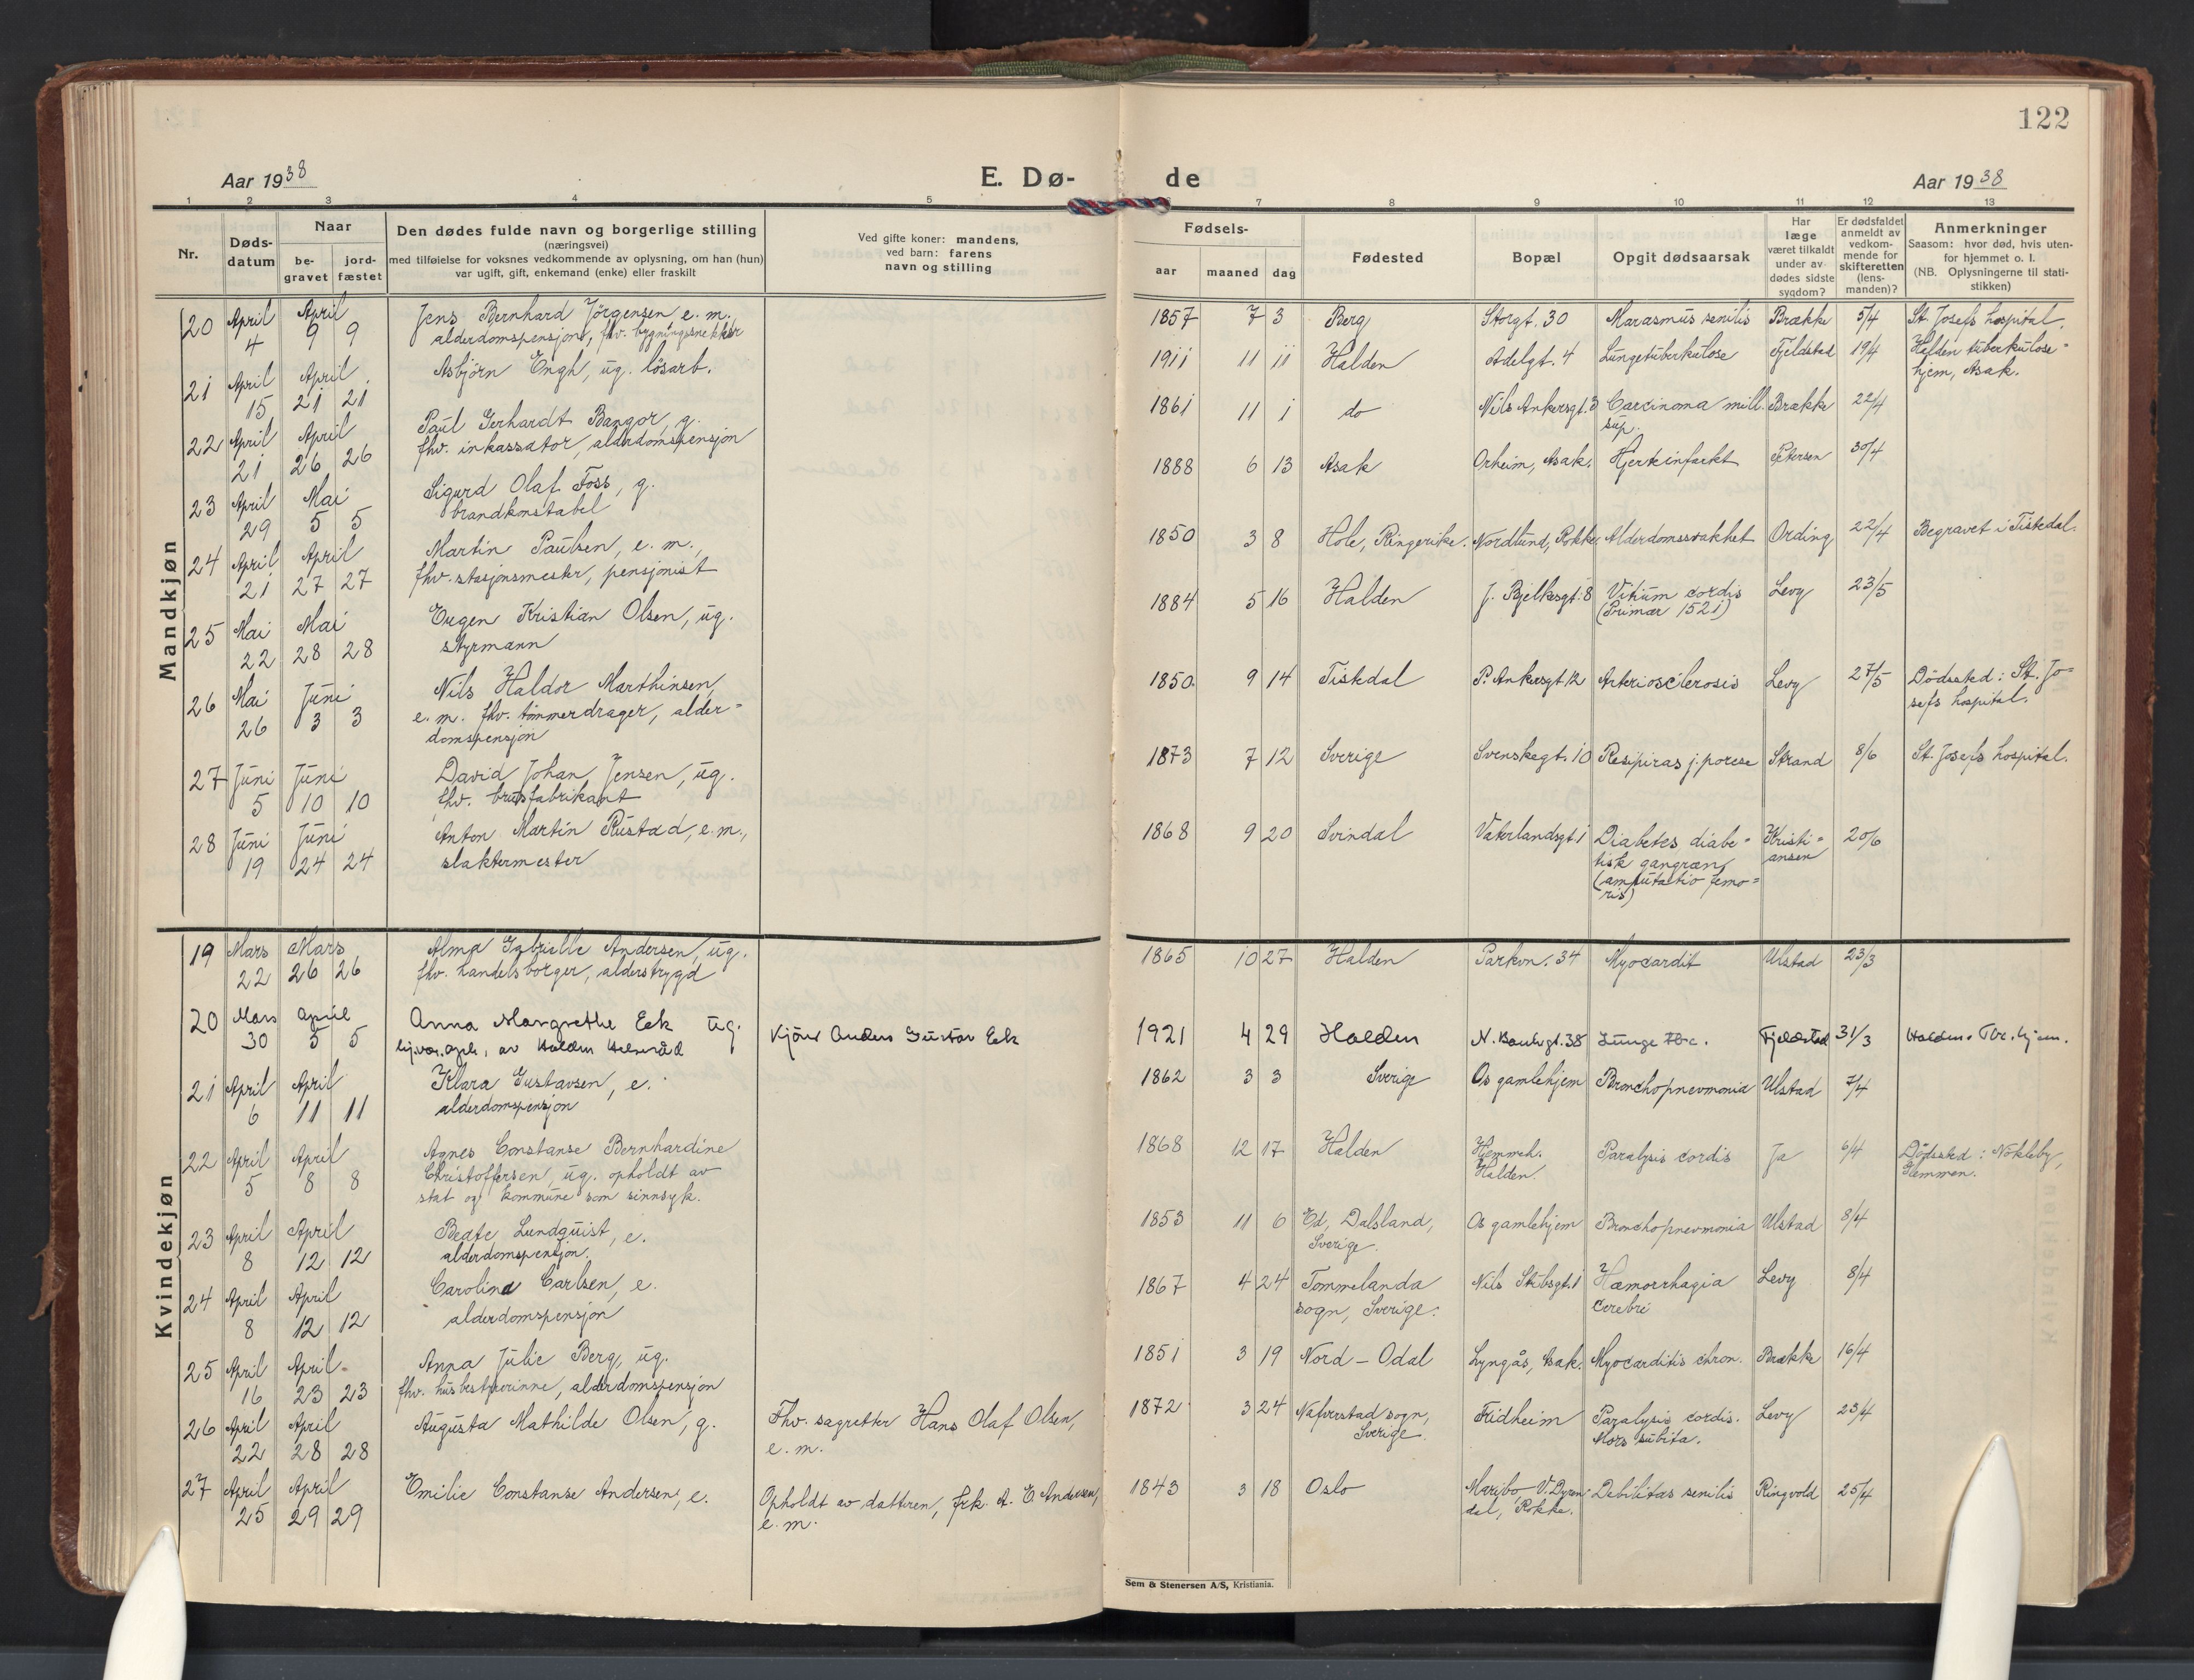 122
Aar 1938
E. Dø-
de
Aar 1938
1 2 3 4 5 6 7 8 9 10 11 12 13
Nr.
Døds-
datum
Naar
be-
gravet
jord-
fæstet
Den dødes fulde navn og borgerlige stilling
(næringsvei)
med tilføielse for voksnes vedkommende av oplysning, om han (hun)
var ugift, gift, enkemand (enke) eller fraskilt
Ved gifte koner: mandens,
ved barn: farens
navn og stilling
Fødsels-
aar maaned dag
Fødested
Bopæl
Opgit dødsaarsak
Har
læge
været tilkaldt
under av-
dødes sidste
sygdom?
Er dødsfaldet
anmeldt av
vedkom-
mende for
skifteretten
(lens-
manden)?
Anmerkninger
Saasom: hvor død, hvis uten-
for hjemmet o. l.
(NB. Oplysningerne til stati-
stikken)
Mandkjøn
20 April April Jens Bernhard Jörgensen e. m. 1857 7 3 Berg Storgt. 30 Marasmus senilis Brække 5/4 St. Josefs hospital.
4 9 9 alderdomspensjon, fhv. bygningssnekker
21 April April Asbjörn Engh, ug. lösarb. 1911 11 11 Halden Adelgt. 4 Lungetuberkulose Fjeldstad 19/4 Halden tuberkulose=
15 21 21 hjem, Asak.
22 April April Paul Gerhardt Bangor, g. 1861 11 1 do Nils Ankersgt. 3 Carcinoma mill. Brække 22/4
21 26 26 fhv. inkassator, alderdomspensjon sup.
23 April Mai Sigurd Olaf Foss, g. 1888 6 13 Asak Orheim, Asak. Hjerteinfarkt Petersen 30/4
29 5 5 brandkonstabel
24 April April Martin Paulsen, e. m., 1850 3 8 Hole, Ringerike. Nordlund, Rokke Alderdomssvakhet Ording 22/4 Begravet i Tistedal.
21 27 27 fhv. stasjonsmester, pensjonist
25 Mai Mai Eugen Kristian Olsen, ug. 1884 5 16 Halden J. Bjelkesgt. 8 Vitium cordis Levy 23/5
22 28 28 styrmann (Primær 1521)
26 Mai Juni Nils Haldor Marthinsen, 1850 9 14 Tistedal P. Ankersgt 12 Arteriosclerosis Levy 27/5 Dödssted: St. Jo=
26 3 3 e. m. fhv. tömmerdrager, alder= sefs hospital.
domspensjon
27 Juni Juni David Johan Jensen, ug. 1873 7 12 Sverige Svenskegt. 10 Strand 8/6 St. Josefs hospital.
5 10 10 fhv. brusfabrikant
28 Juni Juni Anton Martin Rustad, e. m., 1868 9 20 Svindal Vaterlandsgt 1 Diabetes diabe= Kristi= 20/6
19 24 24 slaktermester tisk gangræn ansen
(amputatio femo=
ris)
Kvindekjøn
19 Mars Mars Alma Gabrielle Andersen, ug. 1865 10 27 Halden Parkvn. 34 Myocardit Ulstad 23/3
22 26 26 fhv. handelsborger, alderstrygd
20 Mars April Anna Margrethe Eek ug. Kjöur Anders Gustav Eek 1921 4 29 Halden N. Bankgt. 38 Lunge Tbc. Fjeldstad 31/3 Halden Tbc. hjem.
30 5 5 av Halden
21 April April Klara Gustavsen, e. 1862 3 3 Sverige Os gamlehjem Bronchopneumonia Ulstad 7/4
6 11 11 alderdomspensjon
22 April April Agnes Constanse Bernhardine 1868 12 17 Halden Hjemmeh. Paralysis cordis Ja 6/4 Dödssted: Nökleby,
5 8 8 Christoffersen, ug. opholdt av Halden. Glemmen.
stat og kommune som sinnsyk.
23 April April Beate Lundquist, e. 1853 11 6 Ed, Dalsland, Os gamlehjem Bronchopneumonia Ulstad 8/4
8 12 12 alderdomspensjon. Sverige.
24 April April Carolina Carlsen, e. 1867 4 24 Tommelanda Nils Stubsgt. 1 Hæmorrhagia Levy 8/4
8 12 12 alderdomspensjon sogn, Sverige. cerebri
25 April April Anna Julie Berg, ug. 1851 3 19 Nord-Odal Lyngås, Asak. Myocarditis chron. Brække 16/4
16 23 23 fhv. husbestyrerinne, alderdomspensjon
26 April April Augusta Mathilde Olsen, g. Fhv. sagretter Hans Olaf Olsen, 1872 3 24 Nafverstad sogn, Fridheim Paralysis cordis. Levy 23/4
22 28 28 e. m. Sverige. Mors subita.
27 April April Emilie Constanse Andersen, e. Opholdt av datteren, frk. A. E. Andersen, 1843 3 18 Oslo Maribo V. Dyren Debilitas senilis Ringvold 25/4
25 29 29 e. m. dal, Rokke.
Sem & Stenersen A/S, Kristiania.